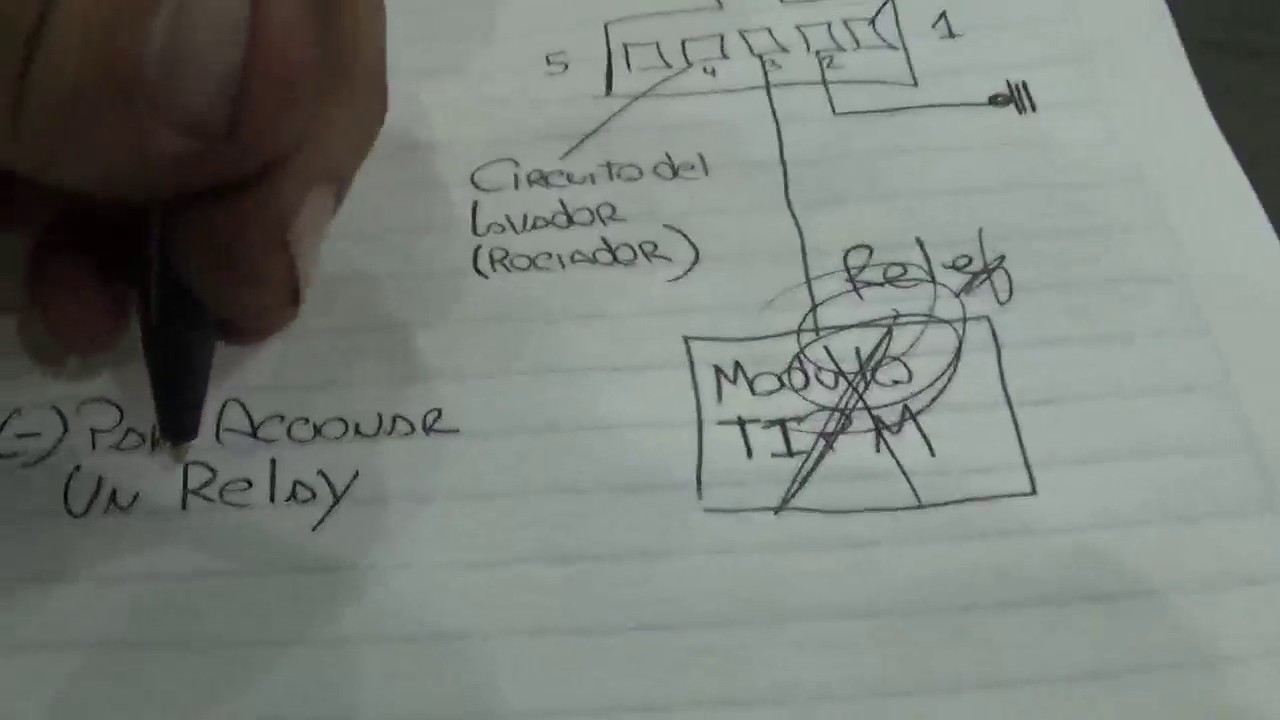 5 1
4 3 2
Circuito del
Lavador
(Rociador)
Relex
Modulo
TIPM
(-) Para Accionar
Un Relay